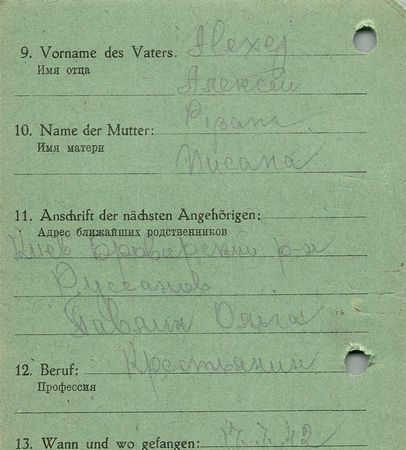 9. Vorname des Vaters. Alexej
Имя отца
Алексей
10. Name der Mutter:
Имя матери
11. Anschrift der nächsten Angehörigen:
Адрес ближайших родственников
Киев Броварский р-н
Ольга
12. Beruf: Крестьянин
Профессия
13. Wann und wo gefangen: 17.7.42